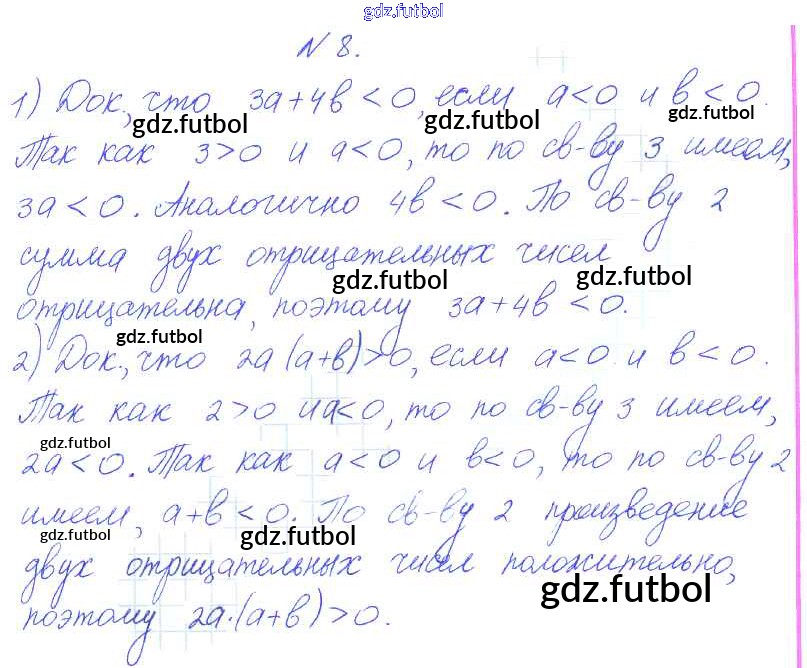 gdz.futbol
N 8.
1) Док., что 3a+4в<0, если a<0 и в<0.
gdz.futbol gdz.futbol gdz.futbol
Так как 3>0 и a<0, то по св-ву 3 имеем,
3a<0. Аналогично 4в<0. По св-ву 2
сумма двух отрицательных чисел
gdz.futbol gdz.futbol
отрицательна, поэтому 3a+4в<0.
gdz.futbol
2) Док., что 2a(a+в)>0, если a<0 и в<0.
Так как 2>0 и a<0, то по св-ву 3 имеем,
gdz.futbol
2a<0. Так как a<0 и в<0, то по св-ву 2
имеем, a+в<0. По св-ву 2 произведение
gdz.futbol gdz.futbol
двух отрицательных чисел положительно,
gdz.futbol
поэтому 2a·(a+в)>0.